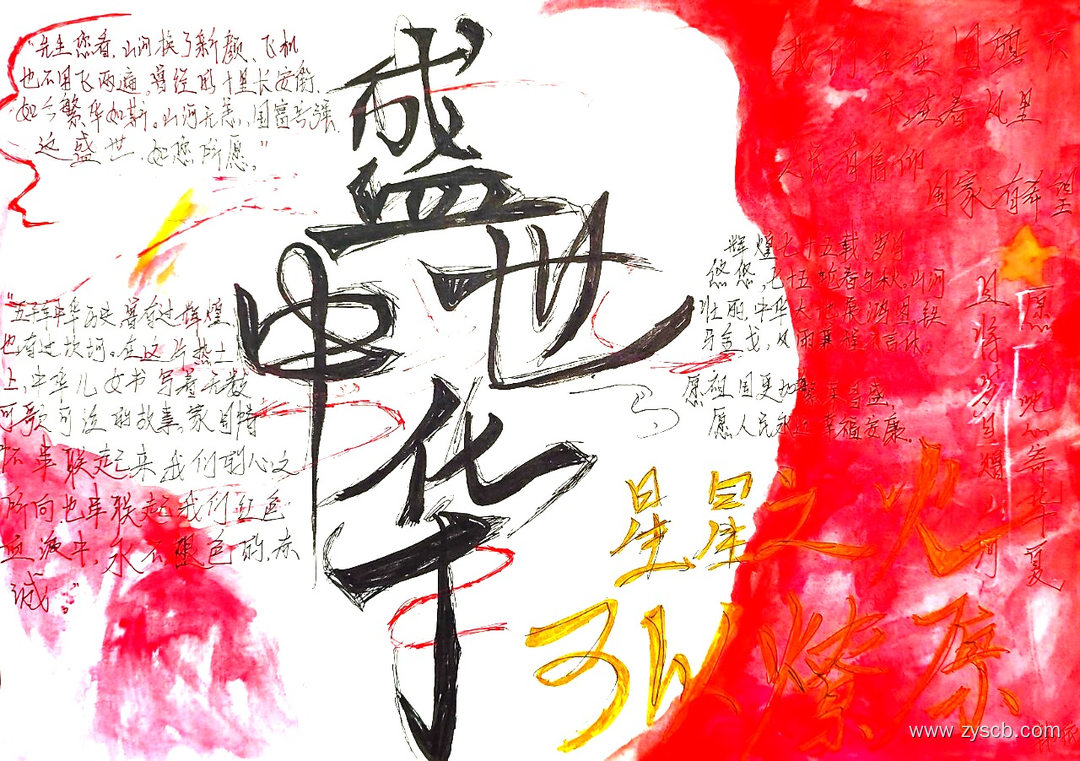 "先生您看,山河换了新颜,飞机
也不用飞两遍,曾经的十里长安街,
如今繁华如斯。山河无恙,国富兵强,
这盛世,如您所愿。"
盛世
中华
"五千年中华历史,曾有过辉煌,
也有过坎坷。在这片热土
上,中华儿女书写着无数
可歌可泣的故事,家国情
怀串联起来我们的心之
所向,也串联起我们红色
血液中,永不褪色的赤
诚。"
我们生在国旗下
长在春风里
人民有信仰
国家有希望
辉煌七十五载,岁月
悠悠,七十五轮春与秋,山河
壮丽,中华大地展鸿图,铁
马金戈,风雨兼程不言休。
愿祖国更加繁荣昌盛,
愿人民永远幸福安康。
愿以此心寄华夏
且将岁月赠山河
星星之火
可以燎原
www.zyscb.com